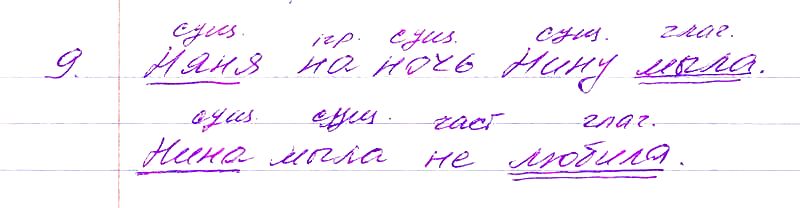 сущ. пр. сущ. сущ. глаг.
9. Няня на ночь Нину мыла.
сущ. сущ. част глаг.
Нина мыла не любила.